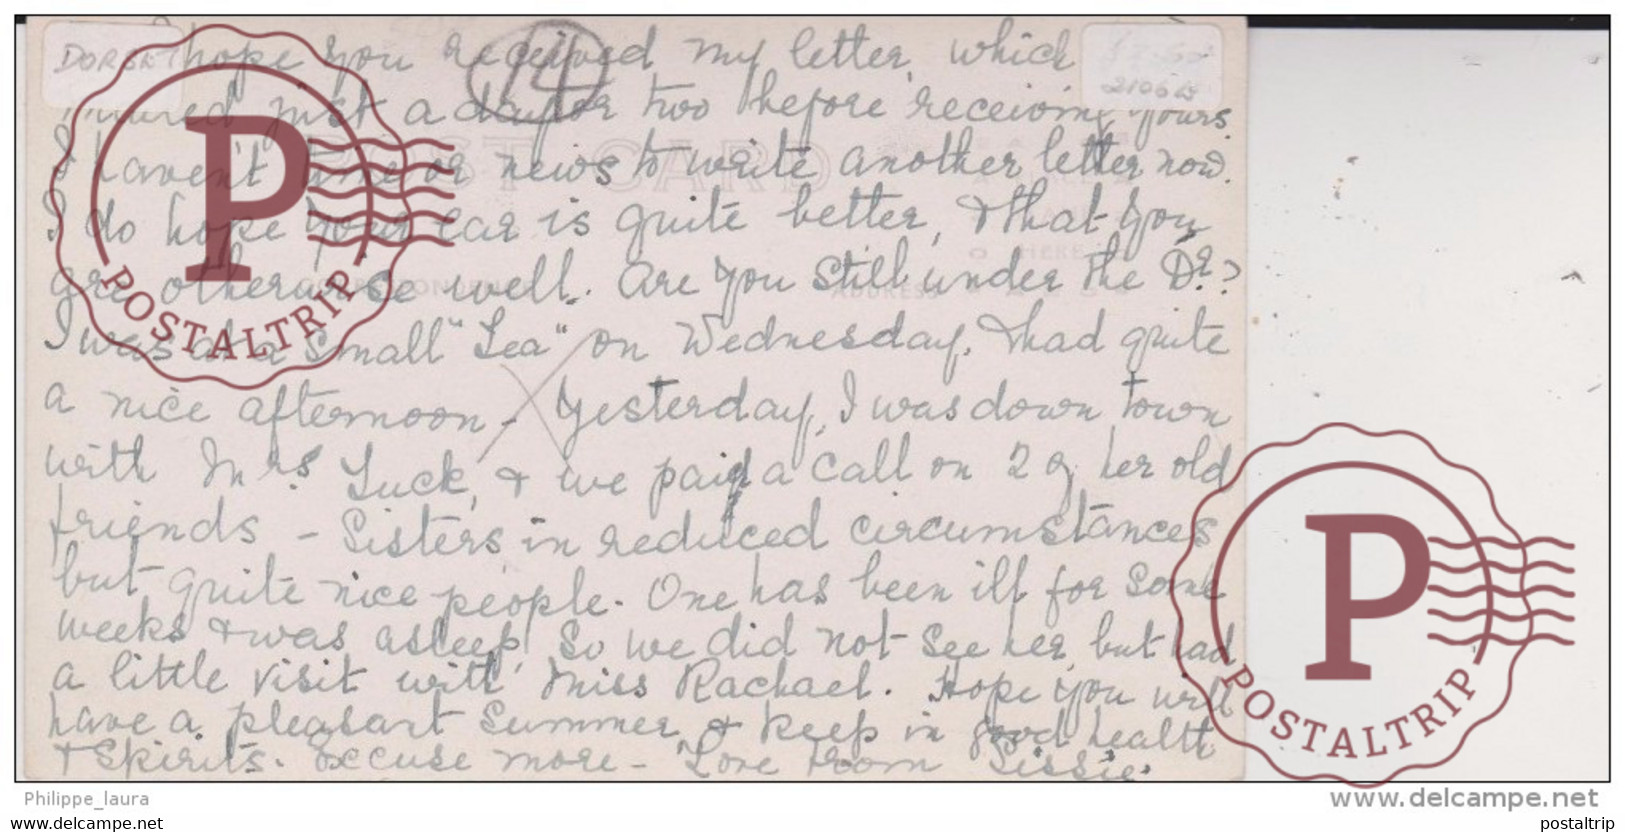 DORSET
I hope you received my letter, which
14
21065
just a day or two before receiving yours.
I haven't time or news to write another letter now.
I do hope your ear is quite better, & that you
are otherwise well. Are you still under the Dr?
I was at a small "Tea" on Wednesday, & had quite
a nice afternoon - Yesterday, I was down town
with Mrs Luck, & we paid a call on 2 of her old
friends - Sisters in reduced circumstances
but quite nice people. One has been ill for some
weeks & was asleep, so we did not see her, but had
a little visit with Miss Rachael. Hope you will
have a pleasant summer & keep in good health
& spirits. Excuse more - Love from Sissie.
POST CARD
CORRESPONDENCE
ADDRESS
HERE
P
POSTALTRIP
P
POSTALTRIP
Philippe_laura
www.delcampe.net
www.delcampe.net
postaltrip